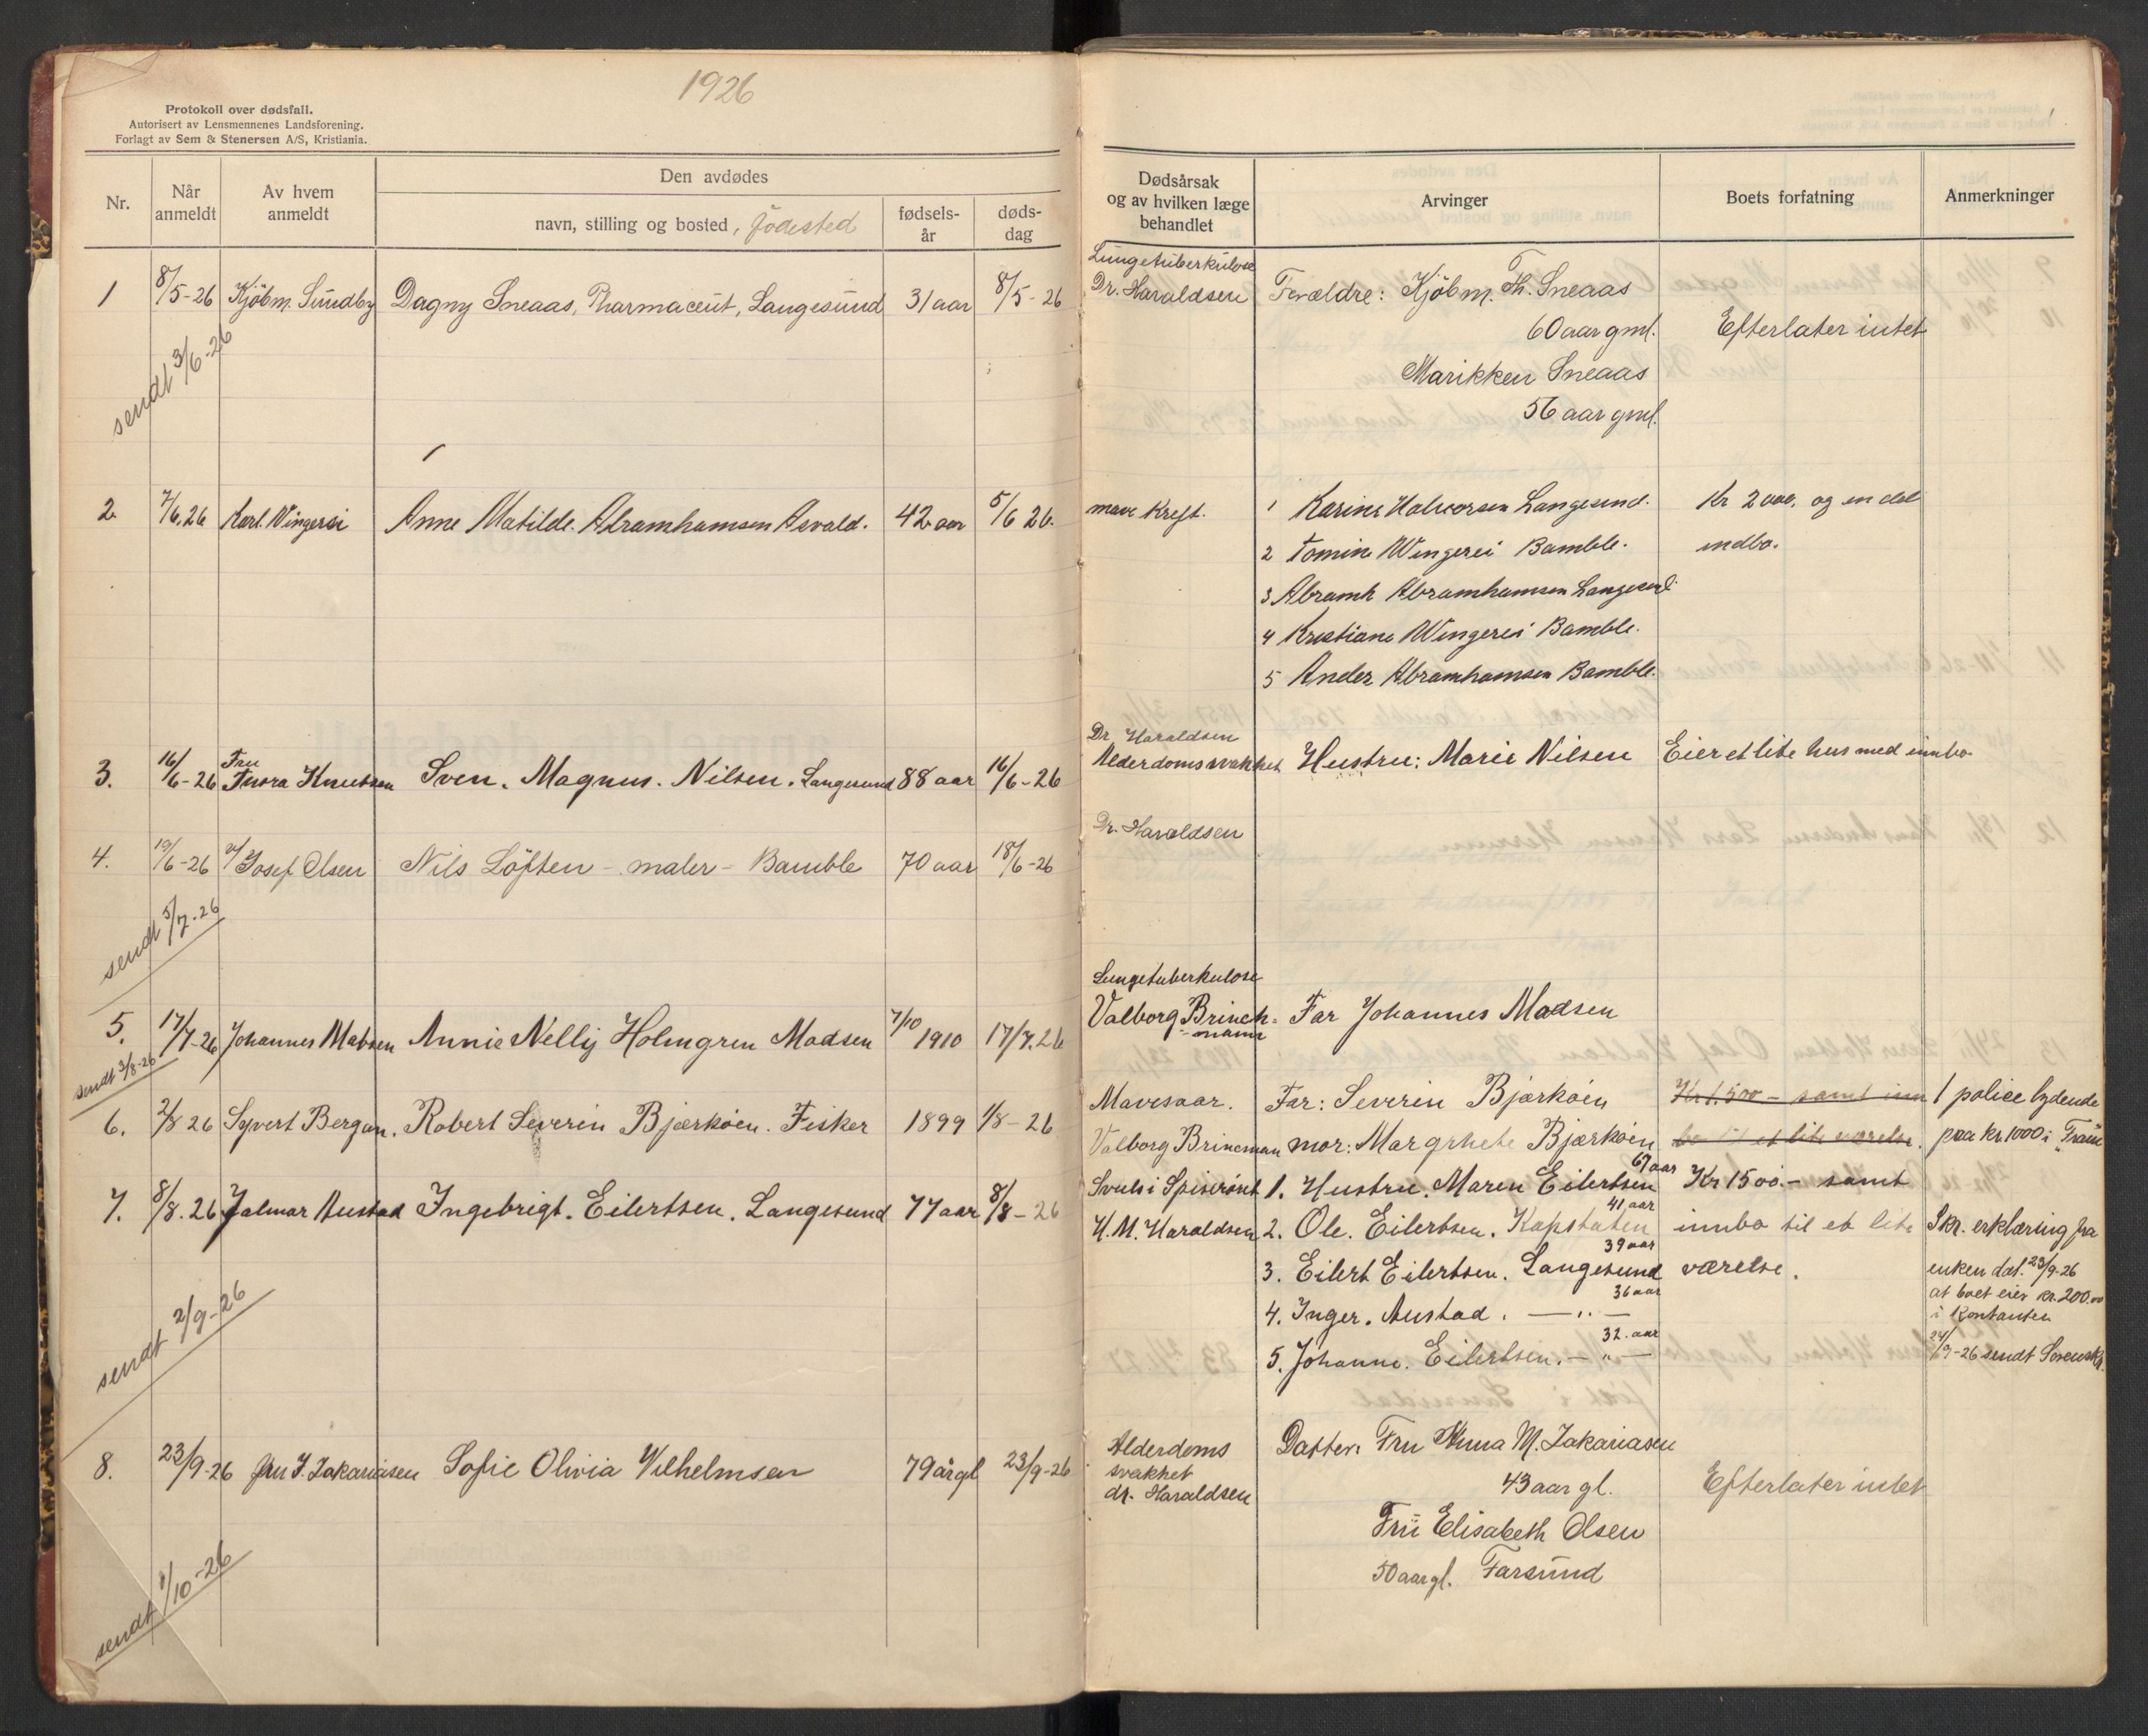 1926
Protokoll over dødsfall.
Autorisert av Lensmennenes Landsforening.
Forlagt av Sem & Stenersen A/S, Kristiania.
Nr.
Når anmeldt
Av hvem anmeldt
Den avdødes
navn, stilling og bosted, födested
fødsels-år
døds-dag
1 8/5-26 Kjöbm. Sundby Dagny Sneaas, Pharmaceut, Langesund 31 aar 8/5-26
sendt 3/6-26
2. 7/6.26 Karl. Wingerei Anne Matilde. Abramhamsen Asvald. 42 aar 5/6 26.
Fru
3. 16/6-26 Knutsen Sven. Magnus. Nilsen. Langesund 88 aar 16/6-26
4. 19/6-26 Josef Olsen Nils Löften - maler - Bamble 70 aar 18/6-26
sendt 5/7-26
5. 17/7-26 Johannes Madsen Annie Nelly Holmgren Madsen 7/10 1910 17/7.26
sendt 2/8-26
6. 2/8 26 Syvert Bergan. Robert Severin Bjærköen. Fisker 1899 1/8-26
7. 8/8.26 Hjalmar Austad Ingebrigt. Eilertsen. Langesund 77 aar 8/8-26
sendt 2/9-26
8. 23/9-26 Fru J. Zakariasen Sofie Olivia Wilhelmsen 79 år gl 23/9-26
sendt 1/10-26
Dødsårsak
og av hvilken læge
behandlet
Arvinger
Boets forfatning
Anmerkninger
Lungetuberkulose
Dr. Haraldsen Forældre: Kjöbm. Th. Sneaas
60 aar gml. Efterlater intet
Marikken Sneaas
56 aar gml.
mave Kreft. 1 Karine Halvorsen Langesund. Kr 2000, og en del
2 Tomine Wingerei Bamble. indbo.
3 Abramh Abramhamsen Langesund
4 Kristiane Wingerei Bamble.
5 Ander Abramhamsen Bamble.
Dr Haraldsen
Alderdomsvakhet Hustru: Marie Nilsen Eier et lite hus med innbo
Dr. Haraldsen
Lungetuberkulose
Valborg Brinch- Far Johannes Madsen
mann
Mavesaar. Far: Severin Bjærköen Kr 1.500 - samt inn 1 police lydende
Valborg Brincman mor: Margrhete Bjærköen bo til et lite værelse. paa kr 1000 i "Fram"
67 aar
Svulst i Spiserøret 1. Hustru. Maren Eilertsen Kr 1500.- samt
41 aar
H. M. Haraldsen 2. Ole. Eilertsen. Kapstaten innbo til et lite Skr. erklæring fra
39 aar
3. Eilert Eilertsen. Langesund værelse. enken dat. 23/9-26
36 aar
at boet eier kr. 200.00
4. Inger. Austad. — „ — i Kontanter
32. aar
5. Johanne. Eilertsen. — „ — 24/9-26 sendt Sorenskr.
Alderdoms Datter: Fru Anna M. Zakariasen
svakhet 43 aar gl. Efterlater intet
dr. Haraldsen
Fru Elisabeth Olsen
50 aar gl. Farsund